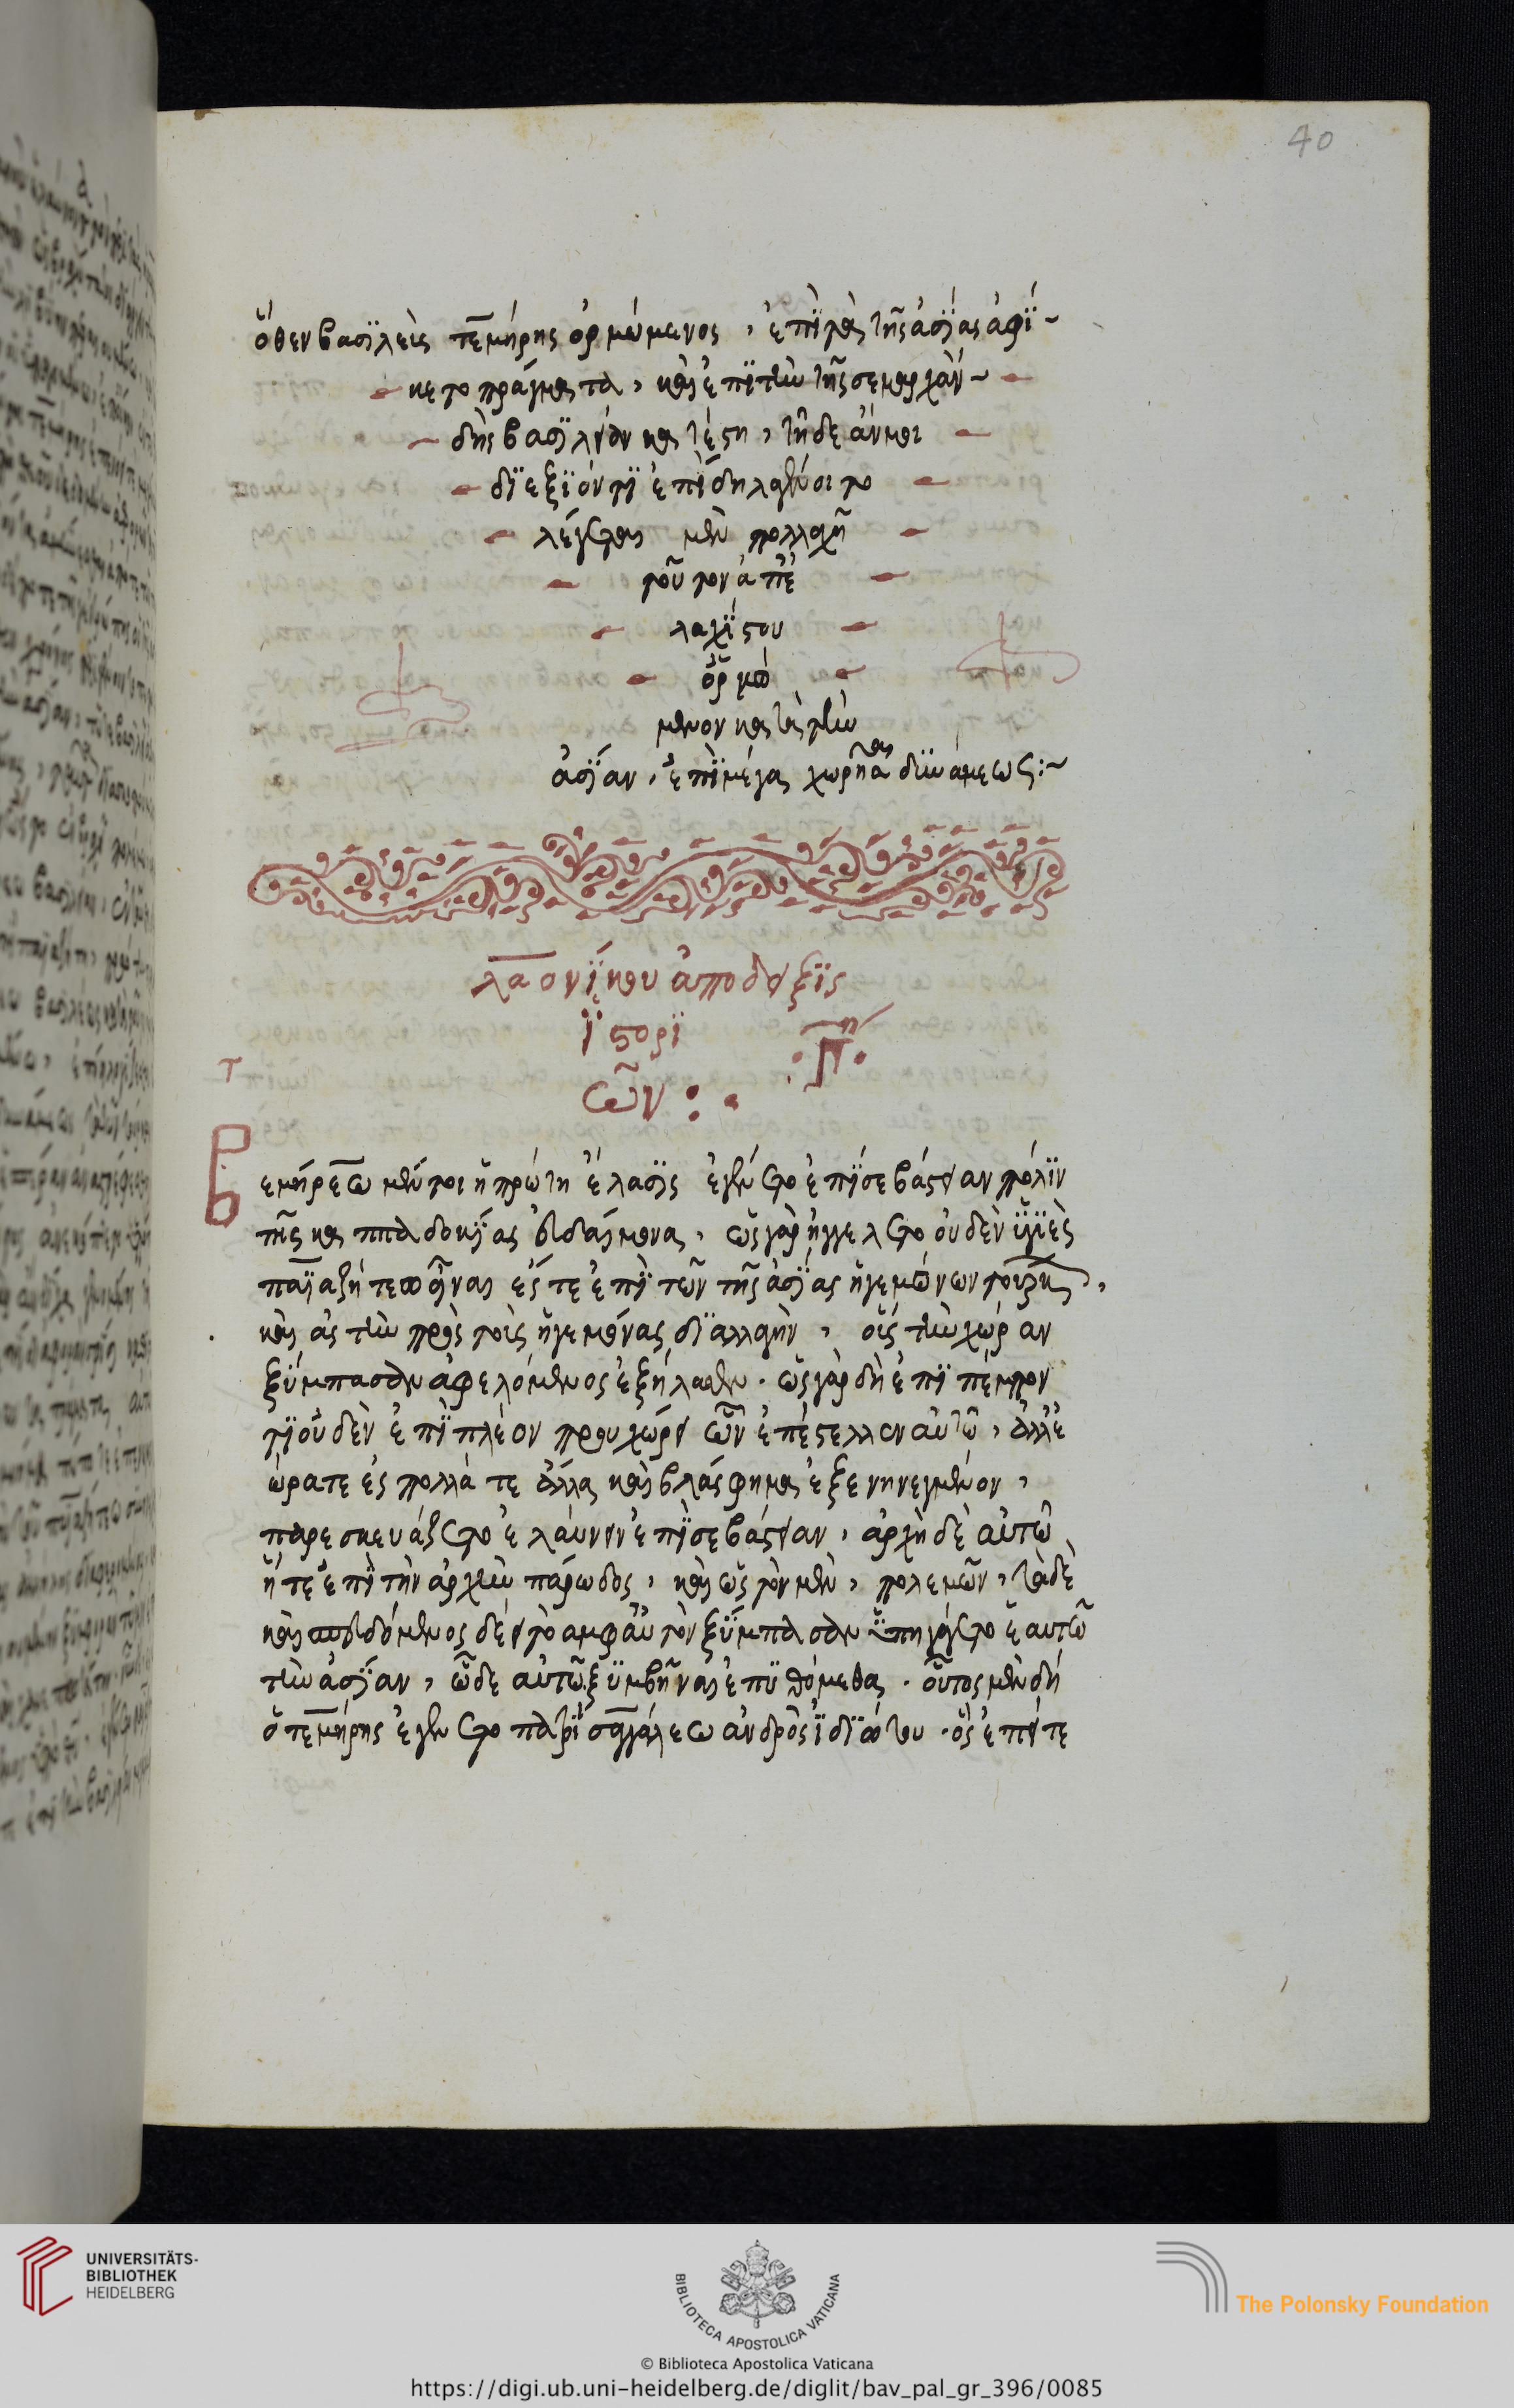 40
ὅθεν βασϊλεὺς τεμήρης ὁρμώμενος, ἐπῒ τὰ τῆς ἀσΐας ἀφΐ~
κετο πράγματα, καὶ ἐπῒ τὴν τῆς σεμαρχάν~
δης βασϊλείαν κατέστη, τῇδε ἄν μοι
δϊεξϊόντϊ ἐπΐδηλα γένοιτο
λέγεται μὲν πολλαχῇ
τοῦτον ἀπ' ἐ
λαχΐστου
ὁρμώ
μενον κατὰ τὴν
ἀσΐαν, ἐπῒ μέγα χωρῆσαι δϋνάμεως:~
λαονΐκου ἀποδείξϊς
ἱστορϊ
ῶν:
τ
Βεμήρεω μέντοι ἡ πρώτη ἔλασϊς ἐγένετο ἐπῒ σεβάστειαν πόλϊν
τῆς καππαδοκΐας εὐδαίμονα, ὡς γὰρ ἤγγελτο οὐδὲν ὑγϊὲς
παϊαζήτεω εἶναι ἔς τε ἐπῒ τῶν τῆς ἀσΐας ἡγεμόνων
καὶ ἐς τὴν πρὸς τοὺς ἡγεμόνας δϊαλλαγὴν, οἷς τὴν χώραν
ξύμπασαν ἀφελόμενος ἐξήλασεν. ὡς γὰρ δὴ ἐπϊπέμπον
τϊ οὐδὲν ἐπῒ πλέον προυχώρει ὧν ἐπέστελλον αὐτῷ, ἀλλ' ἑ
ώρα τε ἐς πολλά τε ἄλλα καὶ βλάσφημα ἐξενηνεγμένον,
παρεσκευάζετο ἐλαύνειν ἐπῒ σεβάστειαν, ἀρχὴ δὲ αὐτῷ
ἥ τε ἐπῒ τὴν ἀρχὴν πάρωδος, καὶ ὡς τὸν μὲν, πολεμῶν, τὰ δὲ
καὶ δεῖ τὸ ἀμφ' αὐτὸν ξύμπασαν ὑπηγάγετο ἑαυτῷ
τὴν ἀσΐαν, ὧδε αὐτῷ ξϋμβῆναι ἐπϋθόμεθα. οὗτος μὲν δὴ
ὁ τεμήρης ἐγένετο παῖς σαγγάλεω ἀνδρὸς ἰδϊώτου. ὃς ἐπεί τε
UNIVERSITÄTS-
BIBLIOTHEK
HEIDELBERG
BIBLIOTECA APOSTOLICA VATICANA
The Polonsky Foundation
© Biblioteca Apostolica Vaticana
https://digi.ub.uni-heidelberg.de/diglit/bav_pal_gr_396/0085